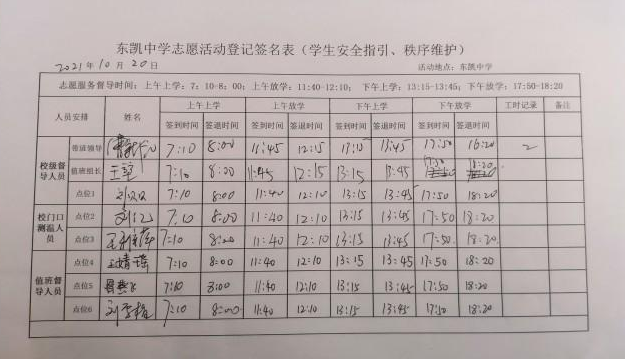 东凯中学志愿活动登记签名表（学生安全指引、秩序维护）
2021年10月20日 活动地点：东凯中学
志愿服务督导时间：上午上学：7：10-8：00；上午放学：11:40-12:10；下午上学：13:15-13:45；下午放学：17:50-18:20
人员安排 姓名 上午上学 上午放学 下午上学 下午放学 工时记录 备注
签到时间 签退时间 签到时间 签退时间 签到时间 签退时间 签到时间 签退时间
校级督导人员 带班领导 7:10 8:00 11:45 12:15 13:15 13:45 17:50 18:20 2
值班组长 7:10 8:20 11:45 12:15 13:15 13:45 17:50 18:20
点位1 7:10 8:00 11:40 12:10 13:15 13:45 17:50 18:20
校门口测温人员 点位2 7:10 8:00 11:40 12:10 13:15 13:45 17:50 18:20
点位3 7:10 8:00 11:40 12:10 13:15 13:45 17:50 18:20
值班督导人员 点位4 7:10 8:00 11:40 12:10 13:15 13:45 17:50 18:20
点位5 7:10 8:00 11:40 12:10 13:15 13:45 17:50 18:20
点位6 7:10 8:00 11:40 12:10 13:15 13:45 17:50 18:20